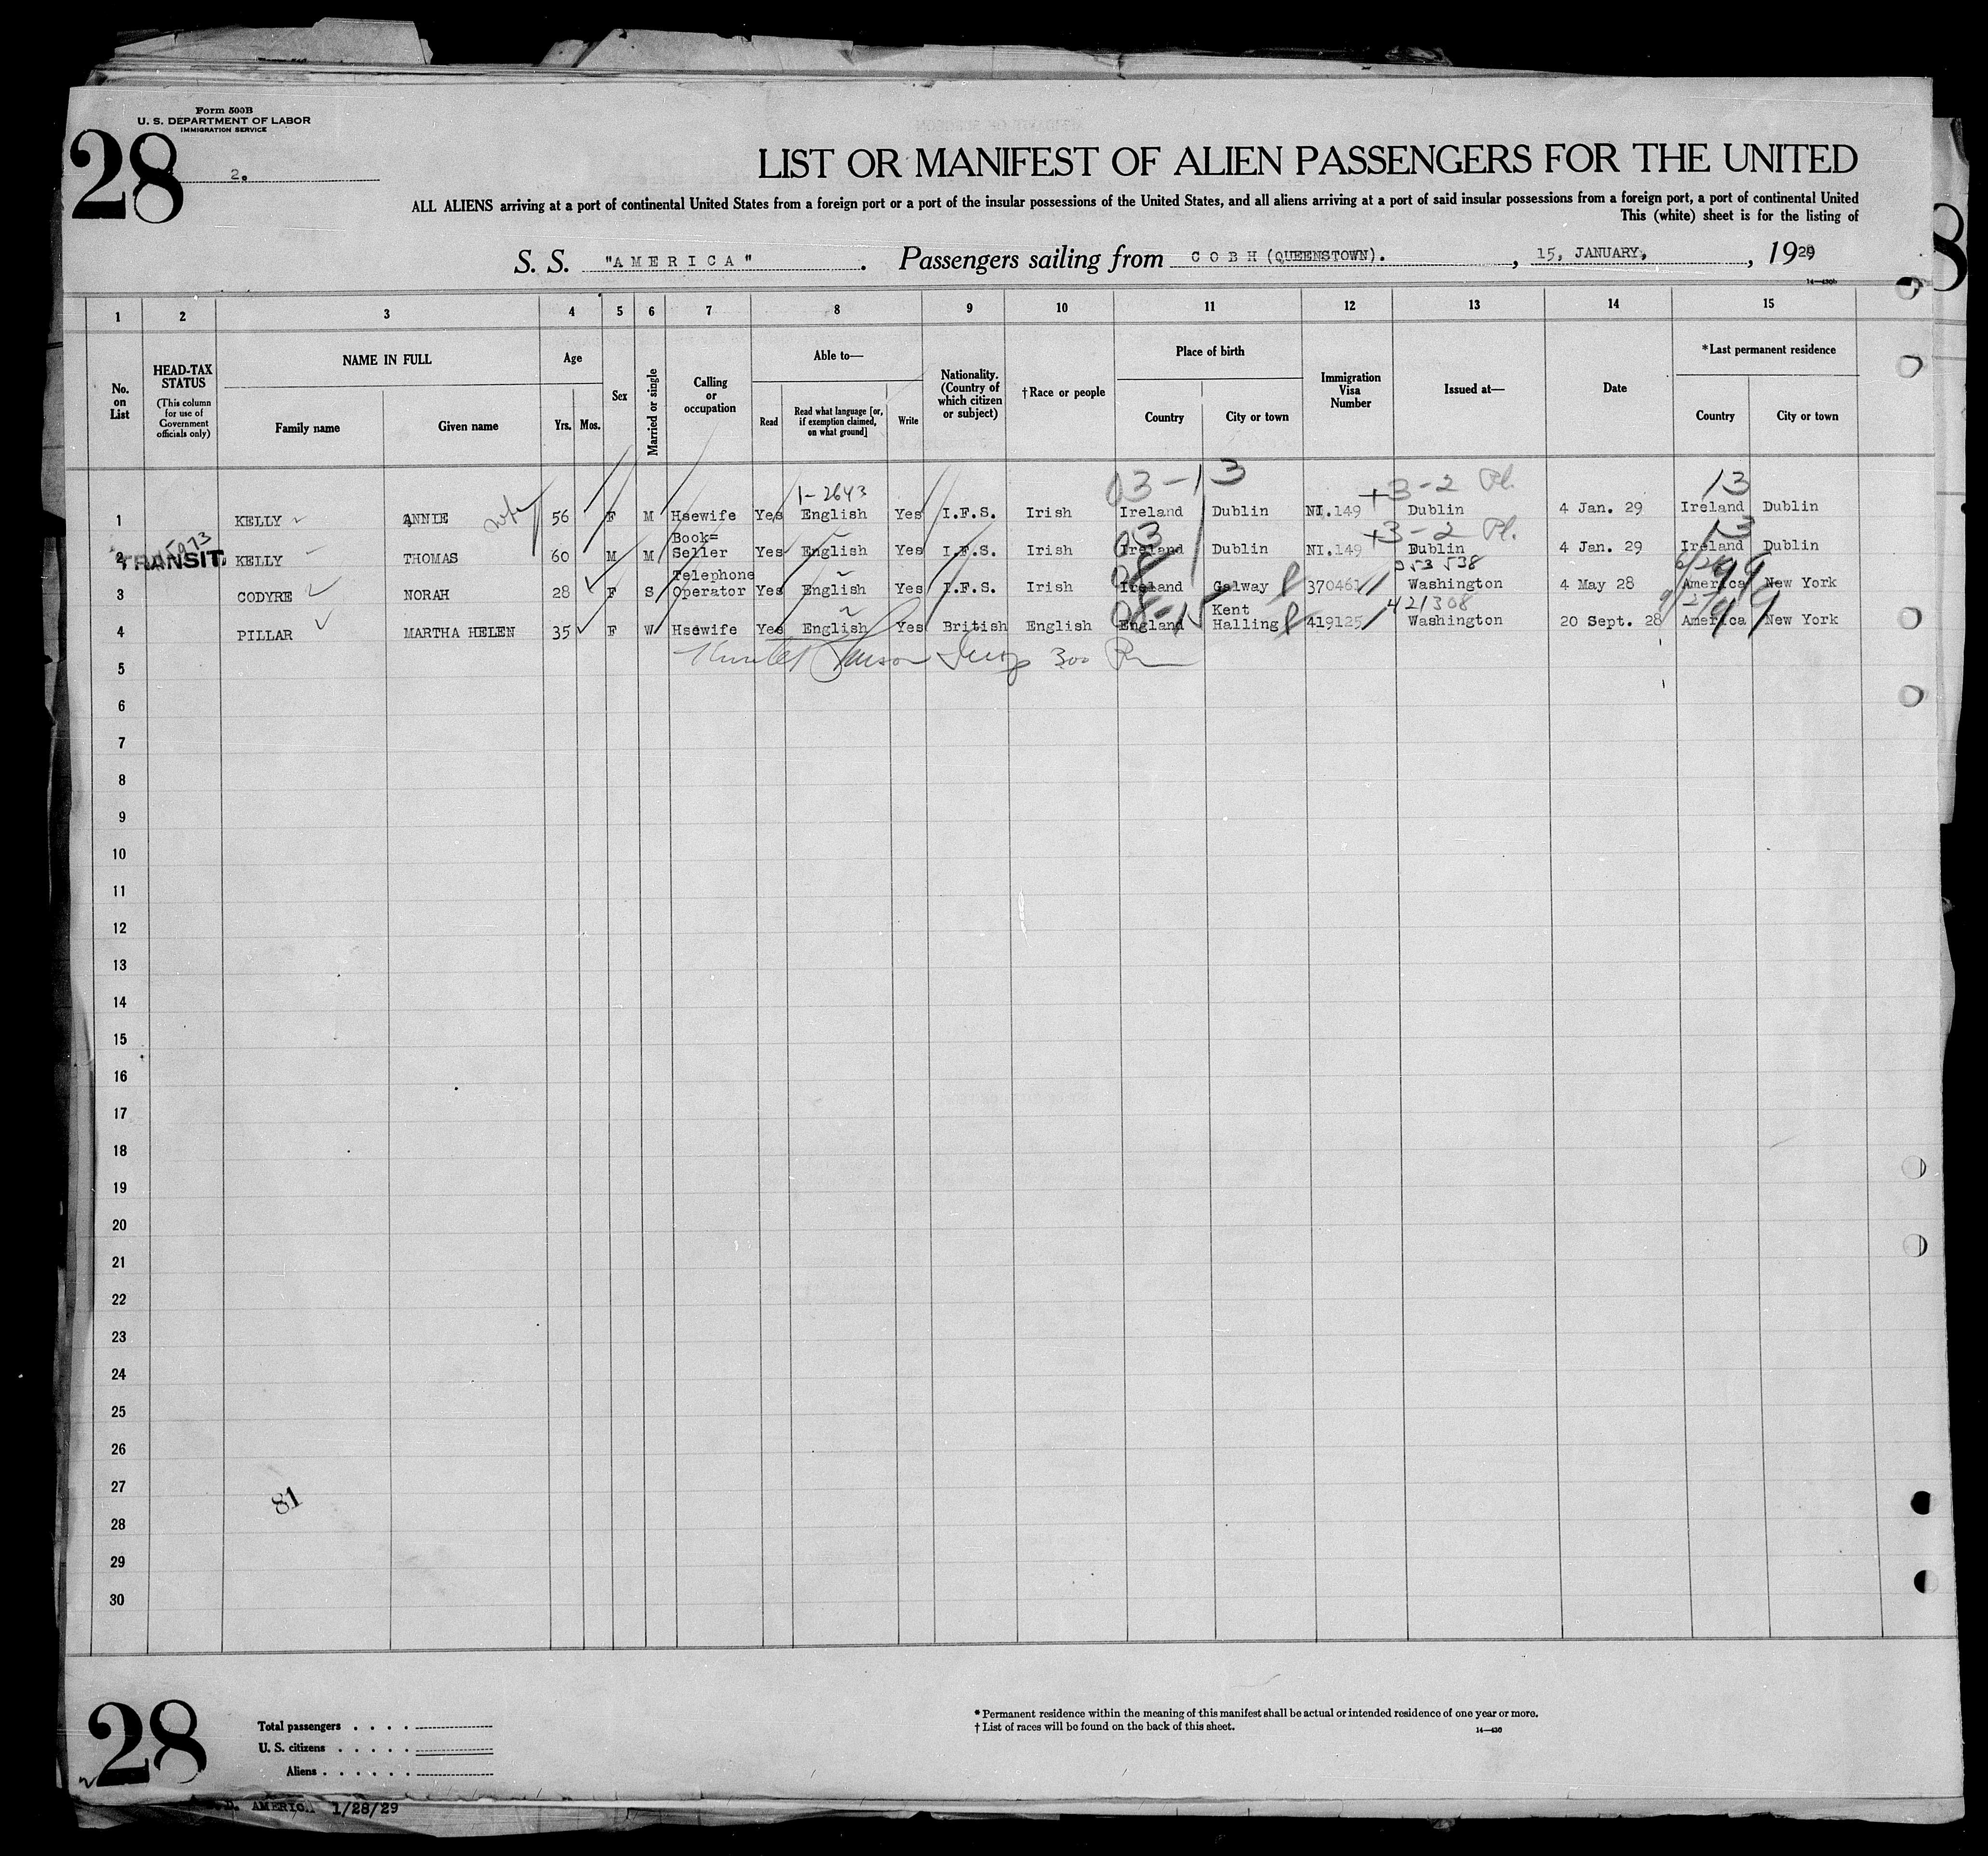 Form 500B
U. S. DEPARTMENT OF LABOR
IMMIGRATION SERVICE
28
2.
LIST OR MANIFEST OF ALIEN PASSENGERS FOR THE UNITED
ALL ALIENS arriving at a port of continental United States from a foreign port or a port of the insular possessions of the United States, and all aliens arriving at a port of said insular possessions from a foreign port, a port of continental United
This (white) sheet is for the listing of
S. S. "AMERICA". Passengers sailing from COBH (QUEENSTOWN). , 15, JANUARY, , 1929
14—430b
1 2 3 4 5 6 7 8 9 10 11 12 13 14 15
No. on List
HEAD-TAX STATUS
(This column for use of Government officials only)
NAME IN FULL
Family name
Given name
Age
Yrs. Mos.
Sex
Married or single
Calling or occupation
Able to—
Read
Read what language [or, if exemption claimed, on what ground]
Write
Nationality. (Country of which citizen or subject)
†Race or people
Place of birth
Country
City or town
Immigration Visa Number
Issued at—
Date
*Last permanent residence
Country
City or town
03-13 +3-2 Pl. 13
1-2643
1 KELLY ANNIE 56 F M Hsewife Yes English Yes I.F.S. Irish Ireland Dublin NI.149 Dublin 4 Jan. 29 Ireland Dublin
03 +3-2 Pl. 13
2 TRANSIT KELLY THOMAS 60 M M Book= Seller Yes English Yes I.F.S. Irish Ireland Dublin NI.149 Dublin 4 Jan. 29 Ireland Dublin
3 CODYRE NORAH 28 F S Telephone Operator Yes English Yes I.F.S. Irish Ireland Galway 370461 Washington 4 May 28 America New York
421308
4 PILLAR MARTHA HELEN 35 F W Hsewife Yes English Yes British English England Kent Halling 419125 Washington 20 Sept. 28 America New York
300
5
6
7
8
9
10
11
12
13
14
15
16
17
18
19
20
21
22
23
24
25
26
27
81
28
29
30
28
Total passengers . . . .
U. S. citizens . . . . .
Aliens . . . . . .
* Permanent residence within the meaning of this manifest shall be actual or intended residence of one year or more.
† List of races will be found on the back of this sheet.
14—430
AMERIC. 1/28/29